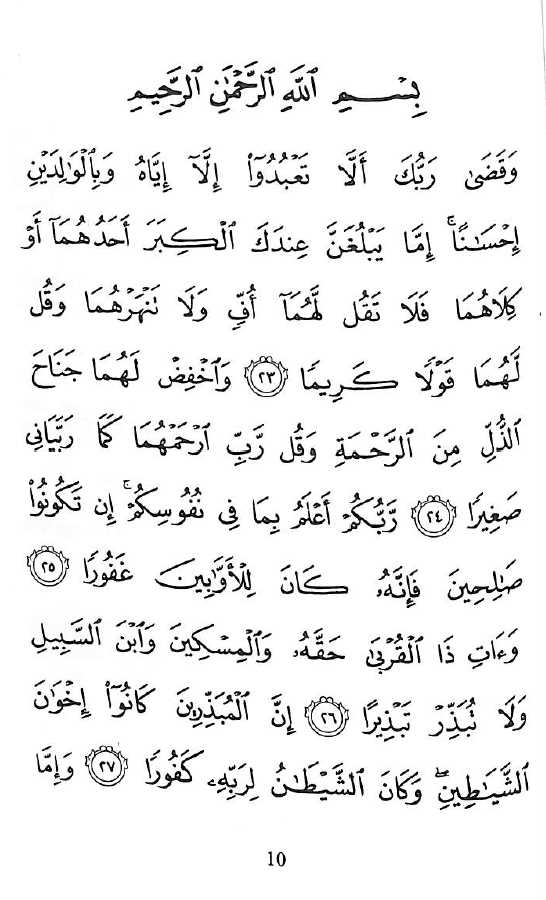 بِسْمِ ٱللَّهِ ٱلرَّحْمَٰنِ ٱلرَّحِيمِ
وَقَضَىٰ رَبُّكَ أَلَّا تَعْبُدُوٓا۟ إِلَّآ إِيَّاهُ وَبِٱلْوَٰلِدَيْنِ
إِحْسَٰنًا ۚ إِمَّا يَبْلُغَنَّ عِندَكَ ٱلْكِبَرَ أَحَدُهُمَآ أَوْ
كِلَاهُمَا فَلَا تَقُل لَّهُمَآ أُفٍّ وَلَا تَنْهَرْهُمَا وَقُل
لَّهُمَا قَوْلًا كَرِيمًا ٢٣ وَٱخْفِضْ لَهُمَا جَنَاحَ
ٱلذُّلِّ مِنَ ٱلرَّحْمَةِ وَقُل رَّبِّ ٱرْحَمْهُمَا كَمَا رَبَّيَانِى
صَغِيرًا ٢٤ رَّبُّكُمْ أَعْلَمُ بِمَا فِى نُفُوسِكُمْ ۚ إِن تَكُونُوا۟
صَٰلِحِينَ فَإِنَّهُۥ كَانَ لِلْأَوَّٰبِينَ غَفُورًا ٢٥
وَءَاتِ ذَا ٱلْقُرْبَىٰ حَقَّهُۥ وَٱلْمِسْكِينَ وَٱبْنَ ٱلسَّبِيلِ
وَلَا تُبَذِّرْ تَبْذِيرًا ٢٦ إِنَّ ٱلْمُبَذِّرِينَ كَانُوٓا۟ إِخْوَٰنَ
ٱلشَّيَٰطِينِ ۖ وَكَانَ ٱلشَّيْطَٰنُ لِرَبِّهِۦ كَفُورًا ٢٧ وَإِمَّا
10